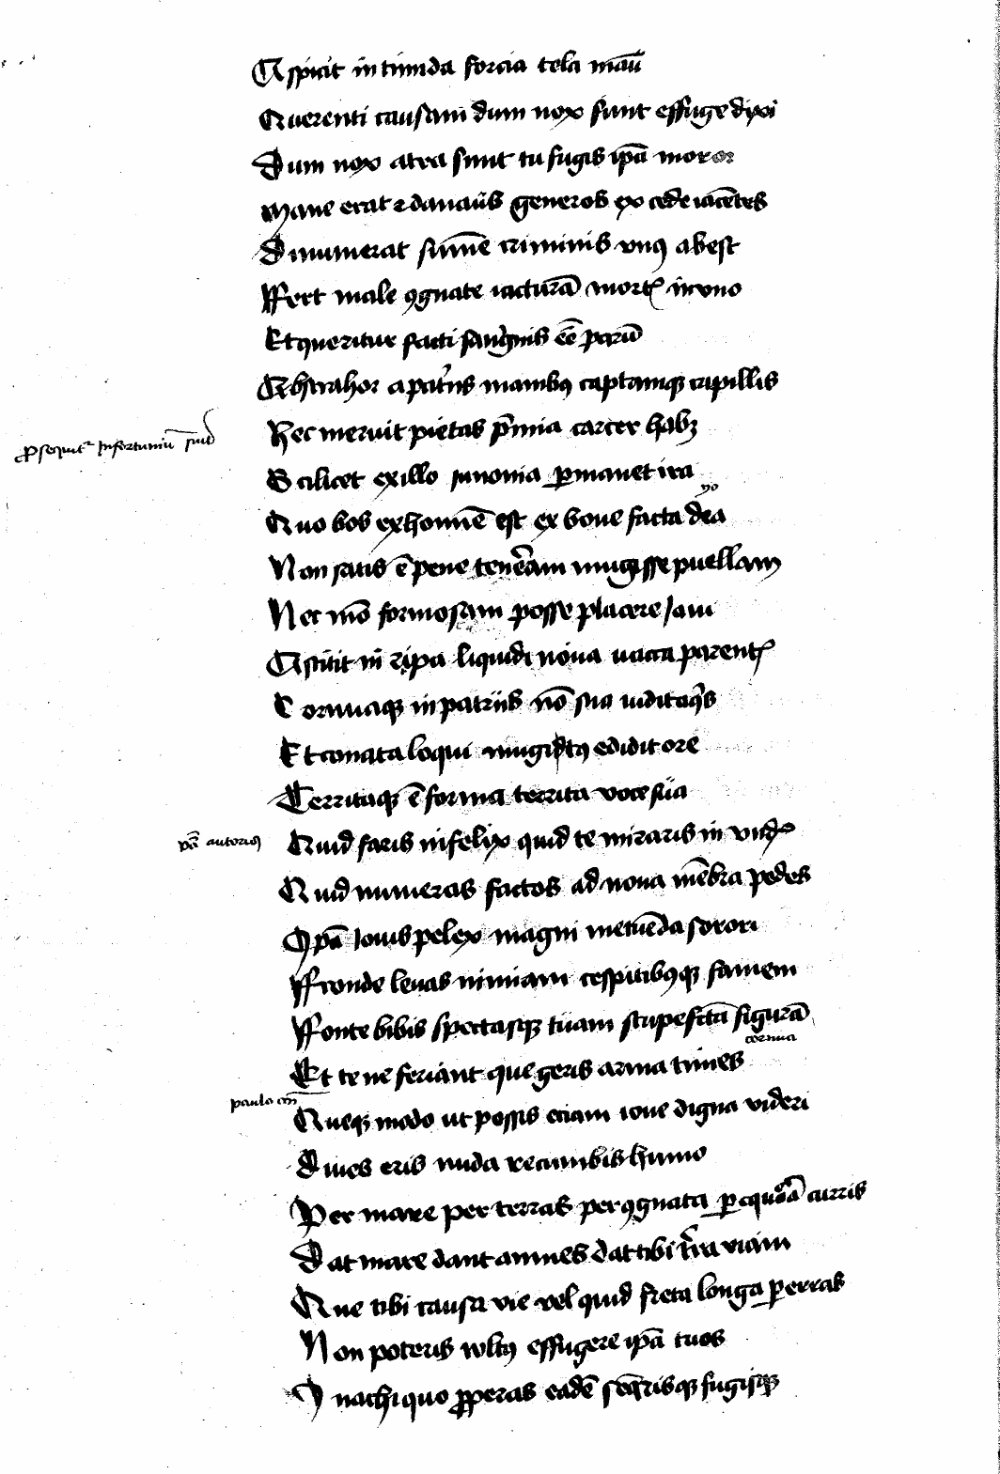 Aspicit in timida forcia tela manu
Querenti causam dum nox sunt effuge dixi
Dum nox atra sunt tu fugis ipā moror
Mane erat & danaus generos ex cede iacētes
Dinumerat sūme criminis vnꝰ abest
Ffert male ꝯgnate iacturā mortꝭ in vno
Et queritur facti sanguīs eē parū
Abstrahor a patrīs manibꝰ captamqꝫ capillis
Hec meruit pietas p̄mia carcer habꝫ
Prosequitr̄ Infortuniū suū
Scilicet ex illo iunonia ꝑmanet ira
Quo bos ex homīe est ex boue facta dea
Non satis ē pene tenēram mugisse puellam
Nec mō formosam posse placere Joui
Astitit in ripa liquidi noua uacca parentꝭ
Cornuaqꝫ in patriis nō sua uidit aqīs
Et conata loqui mugitꝰ edidit ore
Territaqꝫ ē forma territa voce sua
vā autorisꝭ Quid furis infelix quid te miraris in vndꝭ
Quid numeras factos ad noua mēbra pedes
Ipā Iouis pelex magni metuēda sorori
Ffronde leuas nimiam cespitibꝰqꝫ famem
Ffonte bibis spectasqꝫ tuam stupefctā figurā
cornua
Et te ne feriant que geris arma times
paulo
Queqꝫ modo ut possis etiam ioue digna videri
Diues eris nuda recumbis humo
Per mare per terras per ꝯgnata ꝑ equora curris
Dat mare dant amnes dat tibi tr̄ra viam
Que tibi causa vie vel quid freta longa ꝑerras
Non poteris wltꝰ effugere ipā tuos
Inachi quo ꝓperas eadē seqr̄isqꝫ fugisqꝫ